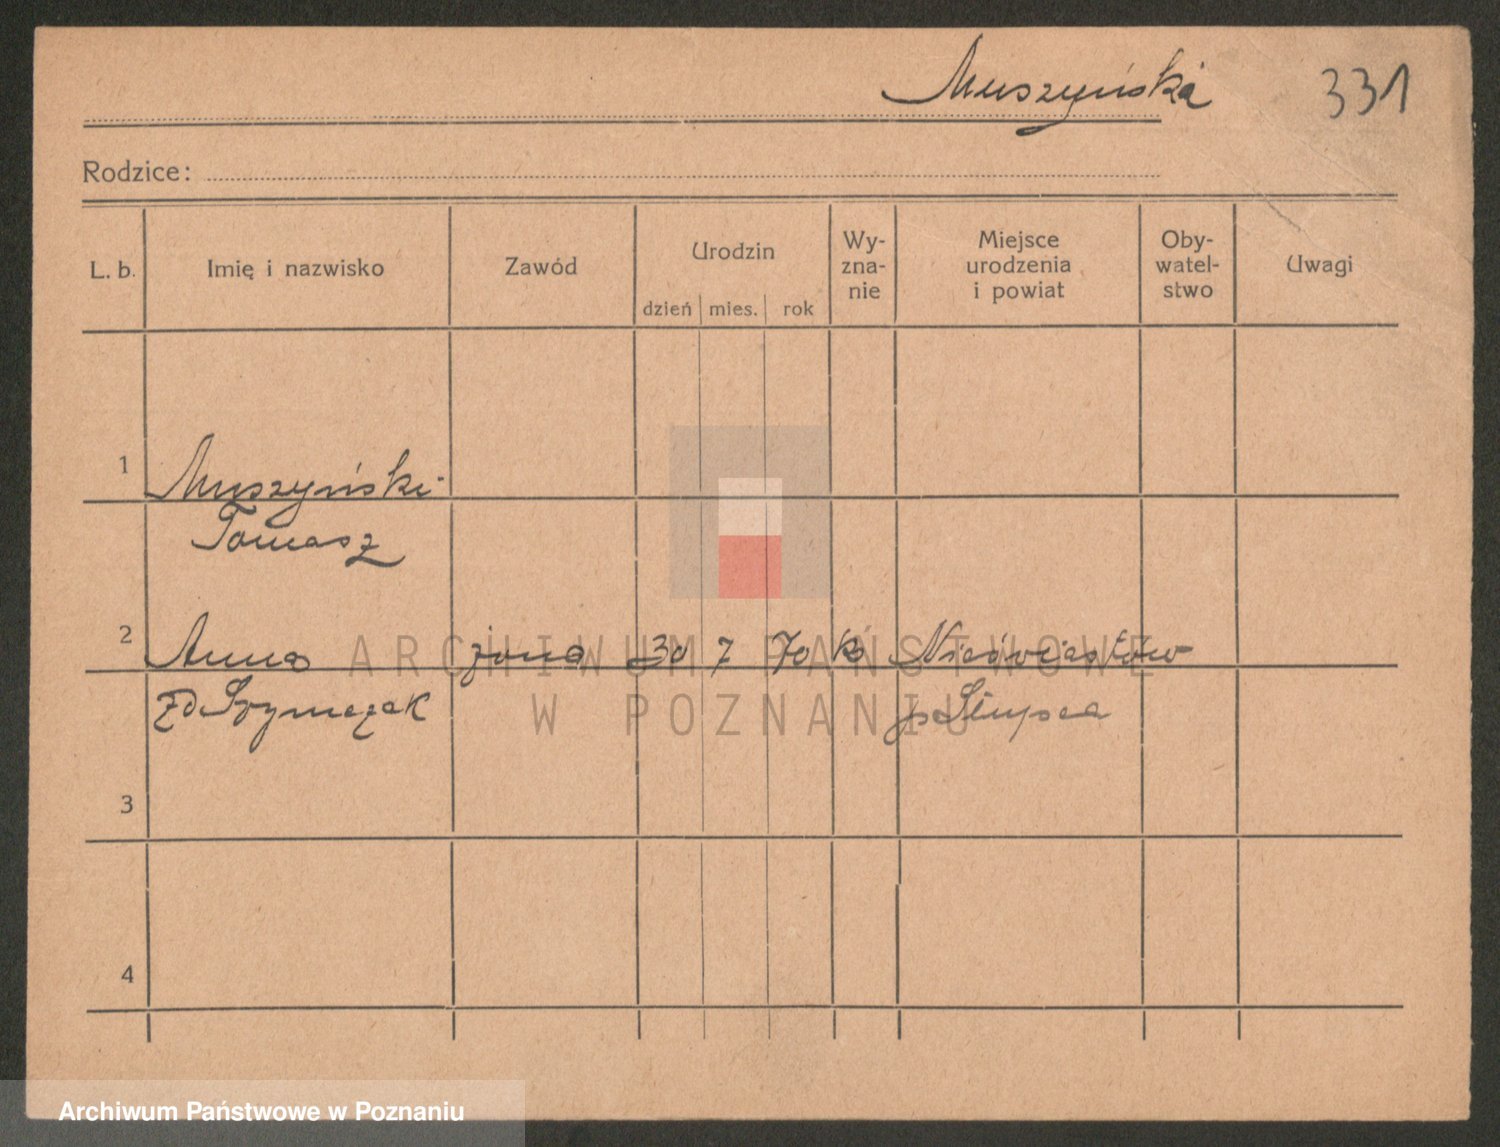 Muszyńska 331
Rodzice:
L. b. Imię i nazwisko Zawód Urodzin dzień mies. rok Wy-zna-nie Miejsce urodzenia i powiat Oby-watel-stwo Uwagi
1 Muszyński
Tomasz
2 Anna żona 30 7 70 k
zd Szymczak p Słupca
3
4
ARCHIWUM PAŃSTWOWE
W POZNANIU
Archiwum Państwowe w Poznaniu